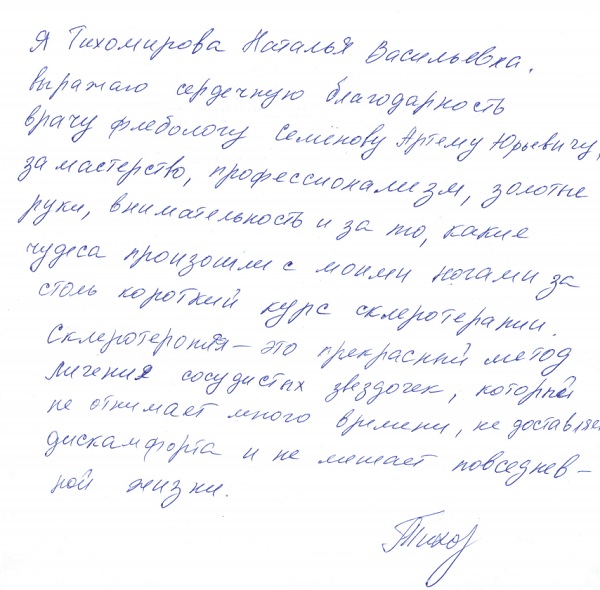 Я Тихомирова Наталья Васильевна.
выражаю сердечную благодарность
врачу флебологу Семёнову Артёму Юрьевичу,
за мастерство, профессионализм, золотые
руки, внимательность и за то, какие
чудеса произошли с моими ногами за
столь короткий курс склеротерапии.
Склеротеропия – это прекрасный метод
личения сосудистых звездочек, который
не отнимает много времени, не доставляе
дискамфорта и не мешает повседнев –
ной жизни.
Тихо